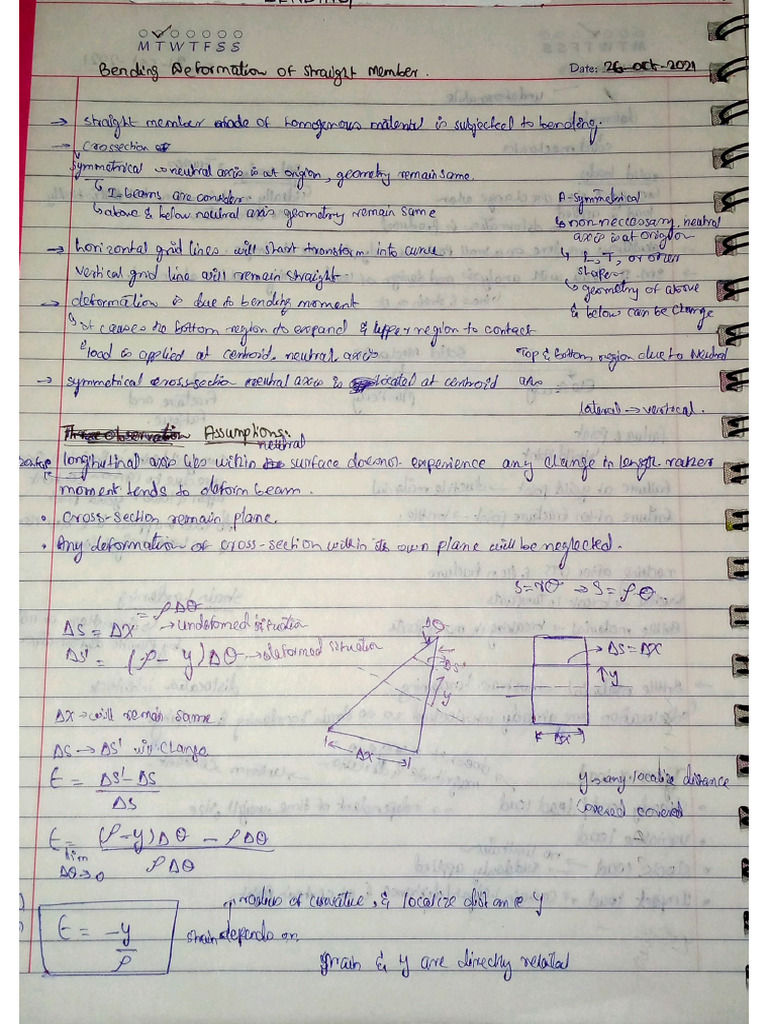 BENDING
M T W T F S S
Bending Deformation of Straight Member.
Date: 26-oct-2021
→ straight member made of homogenous material is subjected to bending.
→ crossection
symmetrical → neutral axis is at origion, geometry remain same.
I-beams are consider.
↳ above & below neutral axis geometry remain same
A-symmetrical
↳ non neccessary, neutral
axis is at origion
↳ L, T, or other
shape
↳ geometry of above
& below can be change
→ horizontal grid lines will start transform into curve
vertical grid line will remain straight.
→ deformation is due to bending moment
↳ it causes the bottom region to expand & upper region to contact
load is applied at centroid, neutral axis
Top & bottom region due to Neutral
axis
→ symmetrical cross-section neutral axis is located at centroid
lateral → vertical.
Three observation Assumptions:
neutral
longitutinal axis lies within the surface doesnot experience any change in length rather
moment tends to deform beam.
• cross-section remain plane.
• Any deformation of cross-section within its own plane will be neglected.
S=rθ → S=ρθ.
ΔS = ΔX = ρΔθ → undeformed situation
ΔS' = (ρ - y)Δθ → deformed situation
Δθ
ΔS'
y
ΔX
→ ΔS=ΔX
↑y
ΔX
ΔX → will remain same.
ΔS → ΔS' will change
ε = ΔS' - ΔS
ΔS
y → any localize distance
covered covered
ε = (ρ-y)Δθ - ρΔθ
lim
Δθ→0
ρΔθ
ε = -y
ρ
radius of curvature, & localize distance y
strain depends on
strain & y are directly related